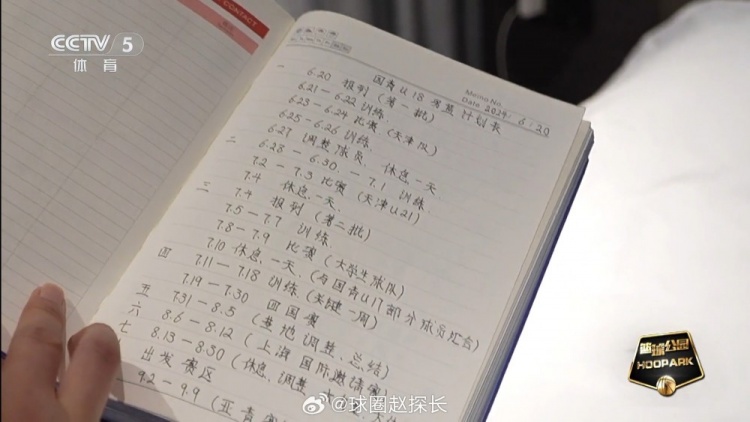 CCTV 5
体育
CONTACT
Memo No.
Date 2024. 6. 20
国青U18 男篮 计划表
一 6.20 报到 (第一批)
6.21 — 6.22 训练
6.23 — 6.24 比赛 (天津队)
6.25 — 6.26 训练
6.27 调整球员、休息一天
二 6.28 — 6.30 — 7.1 训练
7.2 — 7.3 比赛 (天津U21)
7.4 休息一天
三 7.4 报到 (第二批)
7.5 — 7.7 训练
7.8 — 7.9 比赛 (大学生球队)
7.10 休息一天 (与国青U17部分球员汇合)
四 7.11 — 7.18 训练 (关键一周)
7.19 — 7.30 四国赛
五 7.31 — 8.5 (基地调整、总结)
六 8.6 — 8.12 (上海国际邀请赛)
七 8.13 — 8.30 (休息、调整
出发赛区
9.2 — 9.9 (亚青
篮球公园
HOOPARK
@球圈赵探长